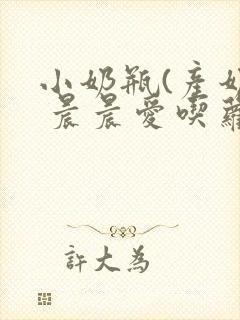 小奶瓶(産奶
晨晨愛喫蘿
許大為